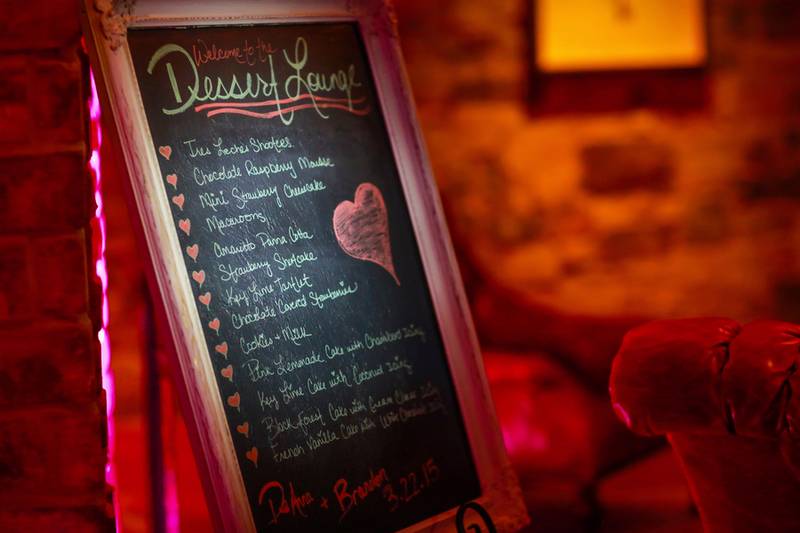 Welcome to the
Dessert Lounge
Tres Leches Shooters
Chocolate Raspberry Mousse
Mini Strawberry Cheesecake
Macaroons
Amaretto Panna Cotta
Strawberry Shortcake
Key Lime Tartlet
Chocolate Covered Strawberries
Cookies + Milk
Pink Lemonade Cake with Chambord Icing
Key Lime Cake with Coconut Icing
Black Forest Cake with Cream Cheese Icing
French Vanilla Cake with White Chocolate Icing
DeAnna + Brandon
3.22.15